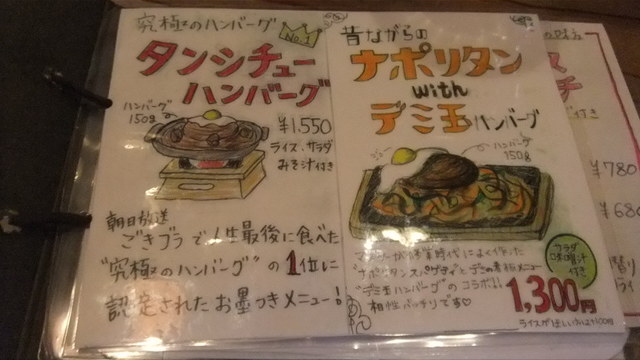 究極のハンバーグ
No.1
タンシチュー
ハンバーグ
ハンバーグ
150g
¥1,550
ライス、サラダ
みそ汁付き
朝日放送
ごきブラで人生最後に食べた
"究極のハンバーグ"の1位に
認定されたお墨つきメニュー!
昔ながらの
ナポリタン
with
デミ玉ハンバーグ
ハンバーグ
150g
マスターが 時代によく作った
"デミ玉ハンバーグ"のコラボ!!
相性バッチリです♡
サラダ
味噌汁
付き
1,300円
ライスがほしい方は+100円
付き
¥780
¥680